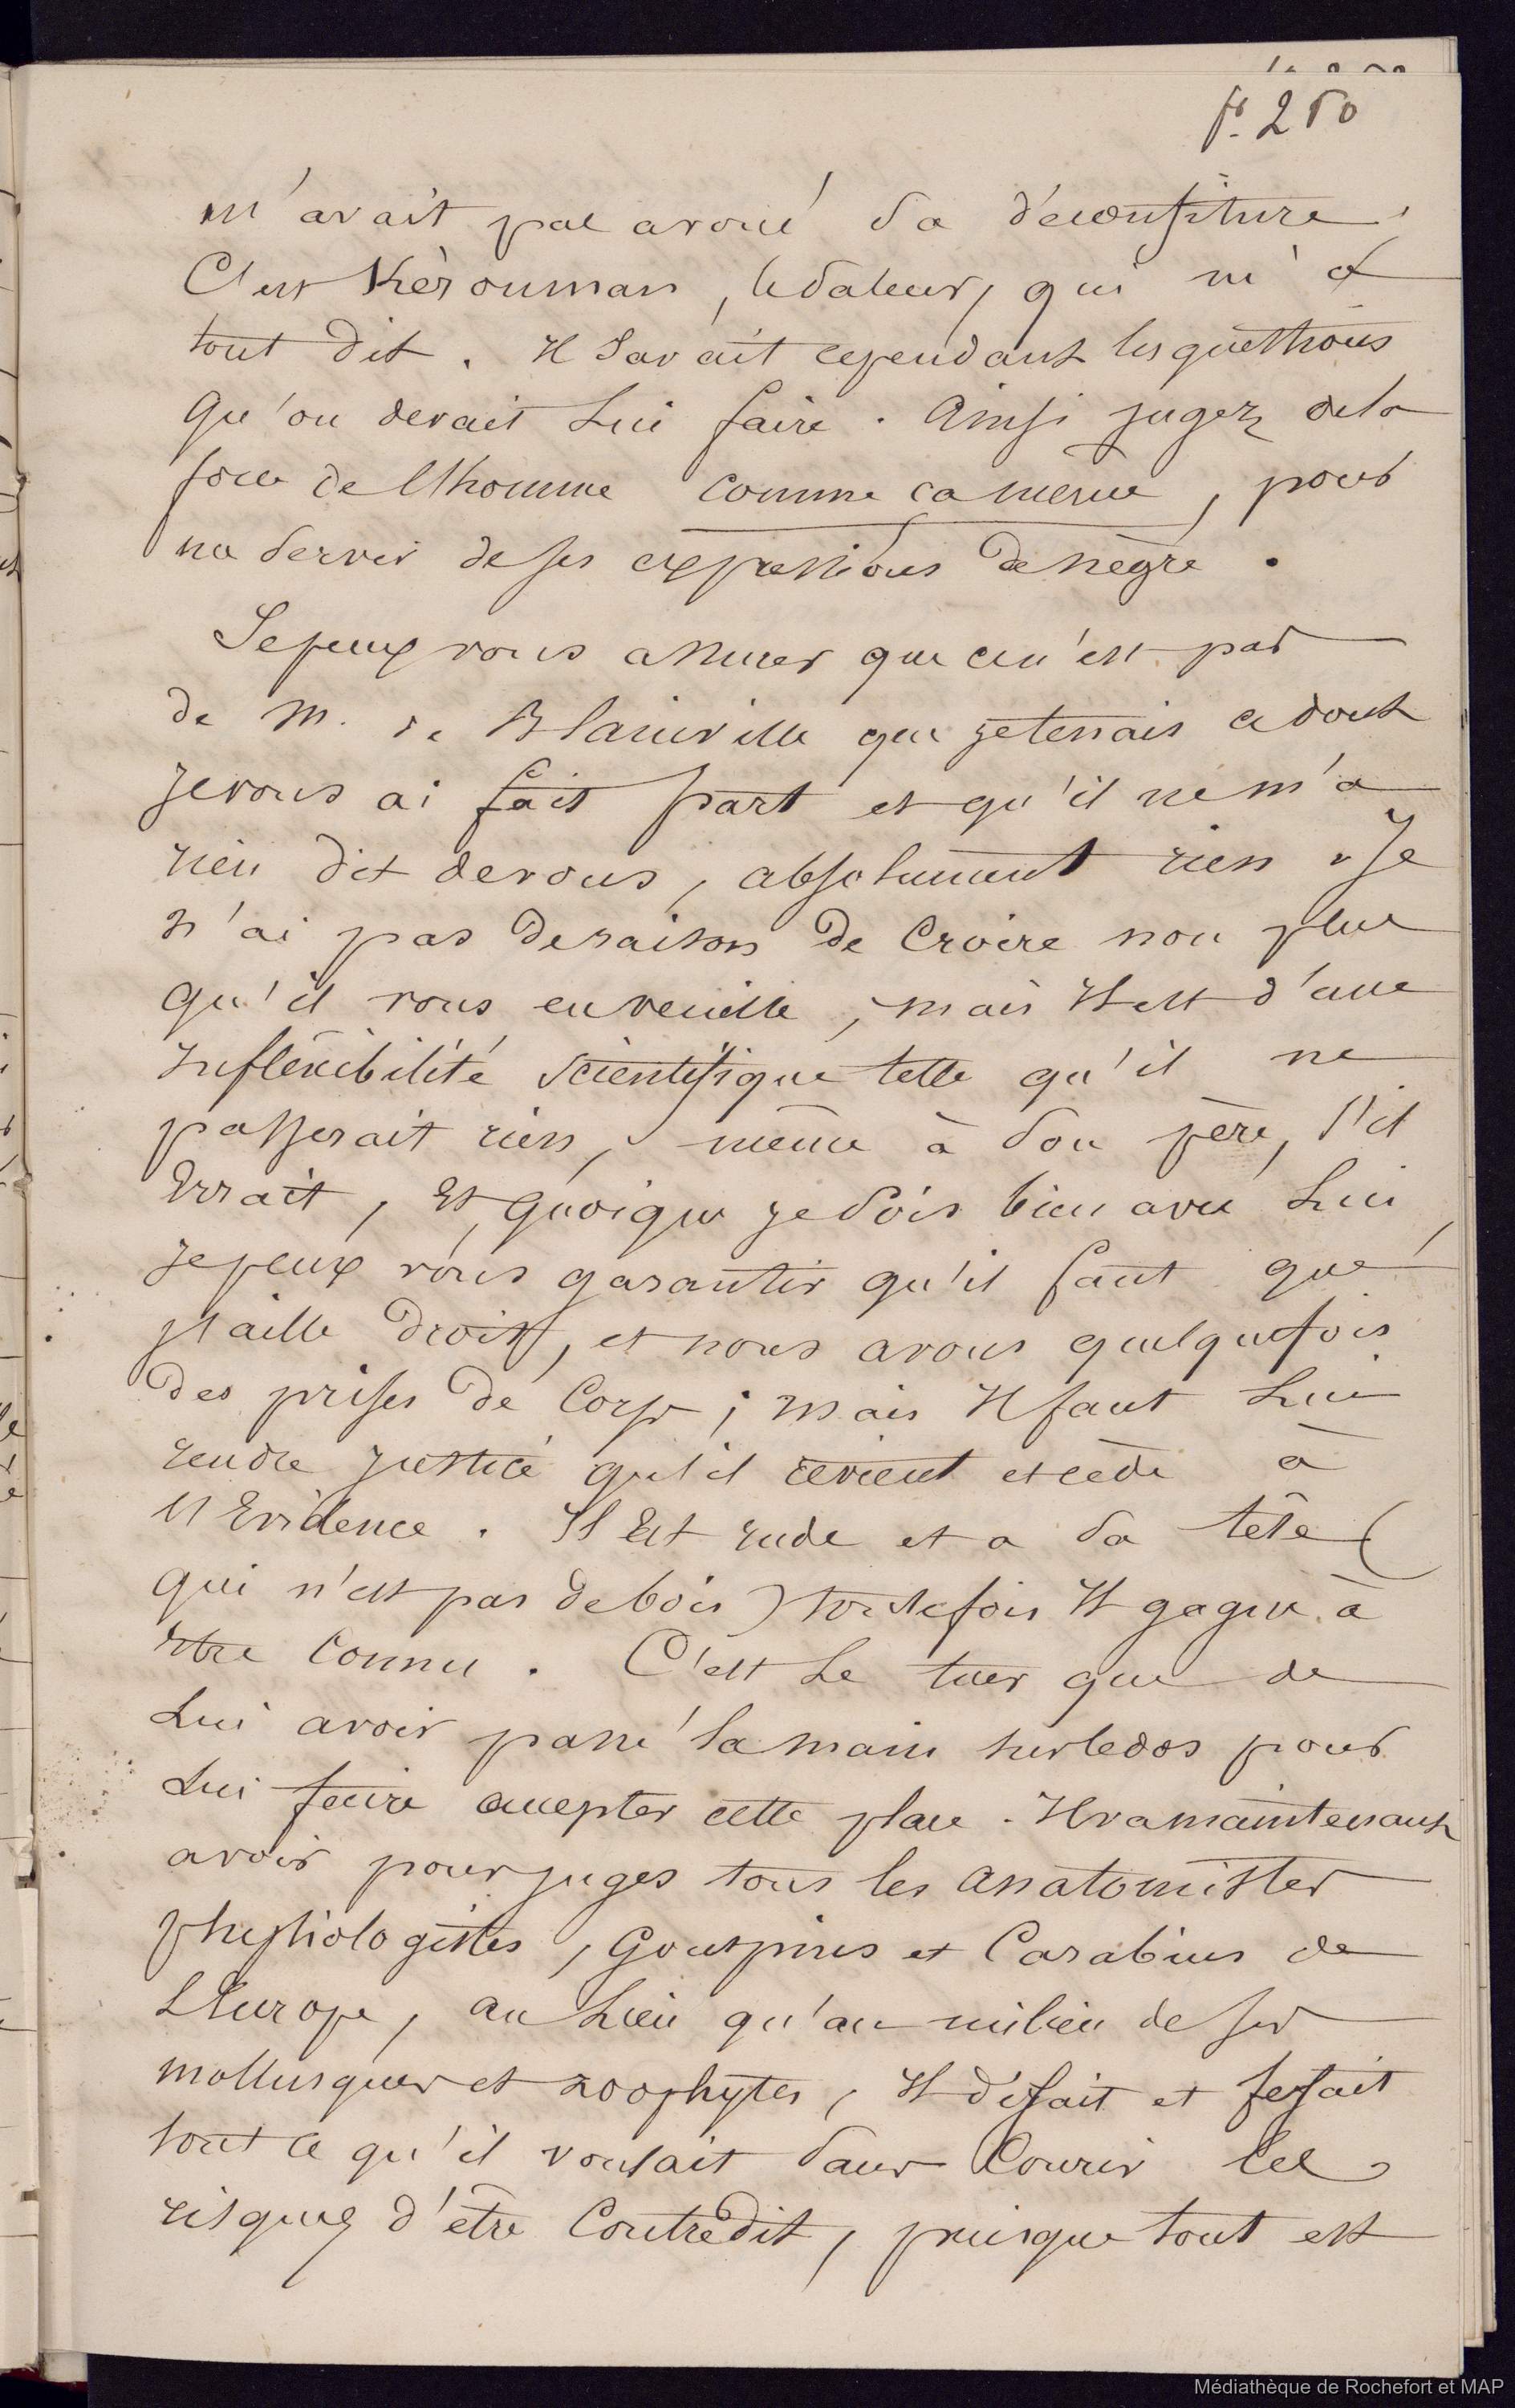 fo. 250
m'avait pas avoué sa déconfiture,
C'est Kérouman, le sateur, qui m'a
tout dit. Il savait cependant les questions
qu'on devait lui faire. Ainsi jugez de la
force de l'homme comme ca meme, pour
me servir de ses expressions de nègre.
Je peux vous assurer que ce n'est pas
de M. de Blainville que je tenais ce dont
je vous ai fait part et qu'il ne m'a
rien dit de vous, absolument rien. Je
n'ai pas de raison de croire non plus
qu'il vous en veuille, mais Il est d'une
Inflexibilité scientifique telle qu'il ne
passerait rien, même à son père, s'il
Errait, Et quoique je sois bien avec Lui,
je peux vous garantir qu'il faut que
j'aille droit, et nous avons quelquefois
des prises de Corps; mais Il faut Lui
rendre justice qu'il revient et cède à
l'Evidence. Il Est rude et a sa tête (
qui n'est pas de bois) toutefois Il gagne à
être Connu. C'est Le tuer que de
Lui avoir passé la main sur le dos pour
Lui faire accepter cette place. Il va maintenant
avoir pour juges tous les anatomistes
physiologistes, Gouspins et Carabins de
L'Europe, au Lieu qu'au milieu de ses
mollusques et zoophytes, Il défait et fesait
tout ce qu'il voulait sans Courir les
risques d'être Contredit, puisque tout est
Médiathèque de Rochefort et MAP